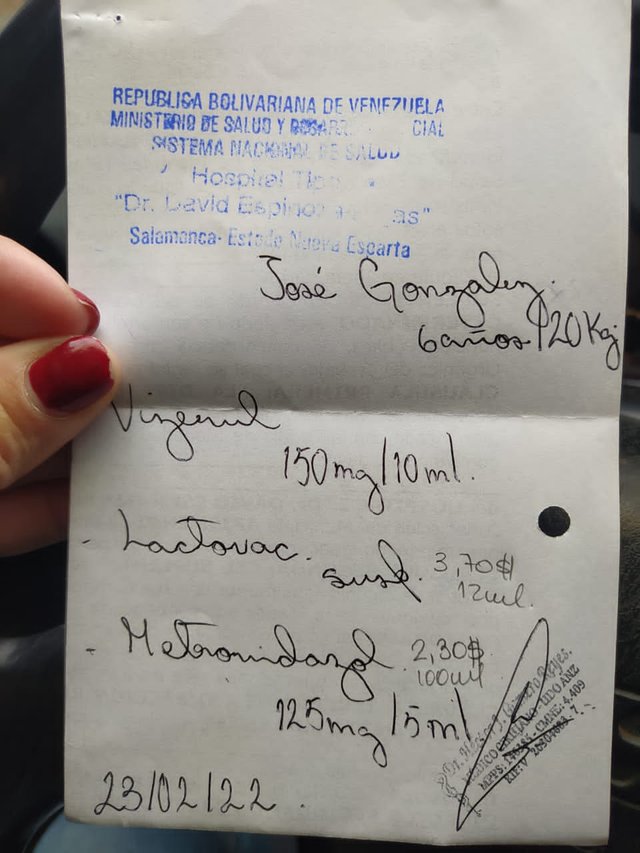 REPUBLICA BOLIVARIANA DE VENEZUELA
MINISTERIO DE SALUD Y CIAL
SISTEMA NACIONAL DE SALUD
Hospital
"Dr. David as"
Salamanca- Estado Nueva Esparta
José Gonzalez.
6 años / 20 Kg
150mg/10ml.
- Lactovac.
susp. 3,70$
12ml.
- Metronidazol 2,30$
100ml
125mg/5ml
23/02/22.